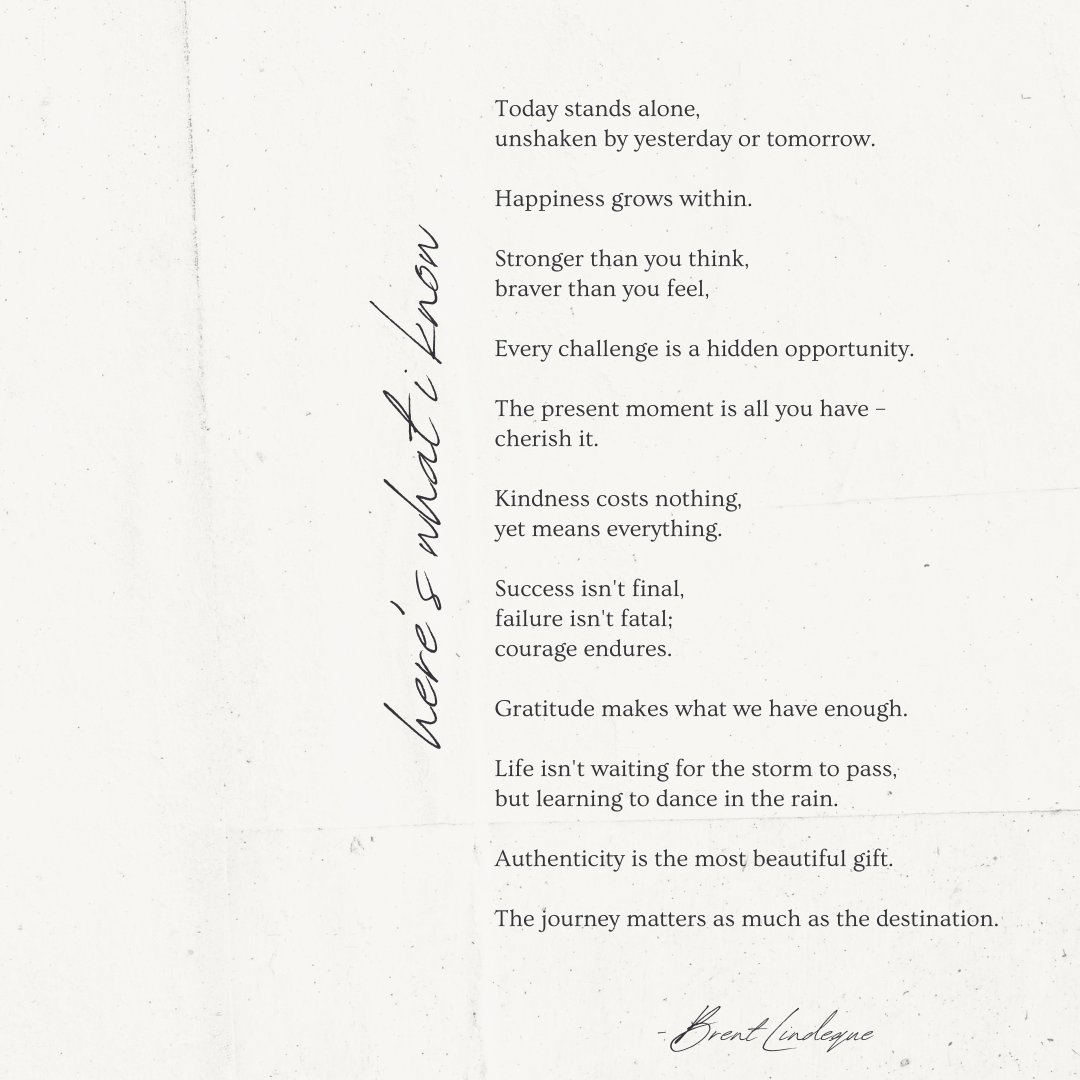 here's what i know
Today stands alone,
unshaken by yesterday or tomorrow.
Happiness grows within.
Stronger than you think,
braver than you feel,
Every challenge is a hidden opportunity.
The present moment is all you have –
cherish it.
Kindness costs nothing,
yet means everything.
Success isn't final,
failure isn't fatal;
courage endures.
Gratitude makes what we have enough.
Life isn't waiting for the storm to pass,
but learning to dance in the rain.
Authenticity is the most beautiful gift.
The journey matters as much as the destination.
- Brent Lindeque